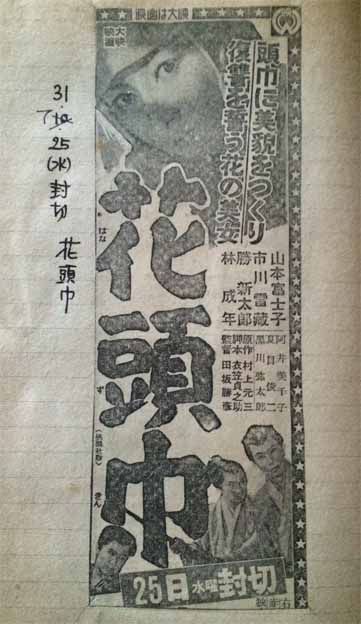 31.
7
25
(水)
封切
花頭巾
映画は大映
頭巾に美貌を
復讐を誓う花の美女
山本富士子
市川雷蔵
勝新太郎
林成年
阿井美千子
夏目俊二
黒川弥太郎
原作 村上元三
脚本 衣笠貞之助
監督 田坂勝彦
花頭巾
はな ず きん
25日水曜封切